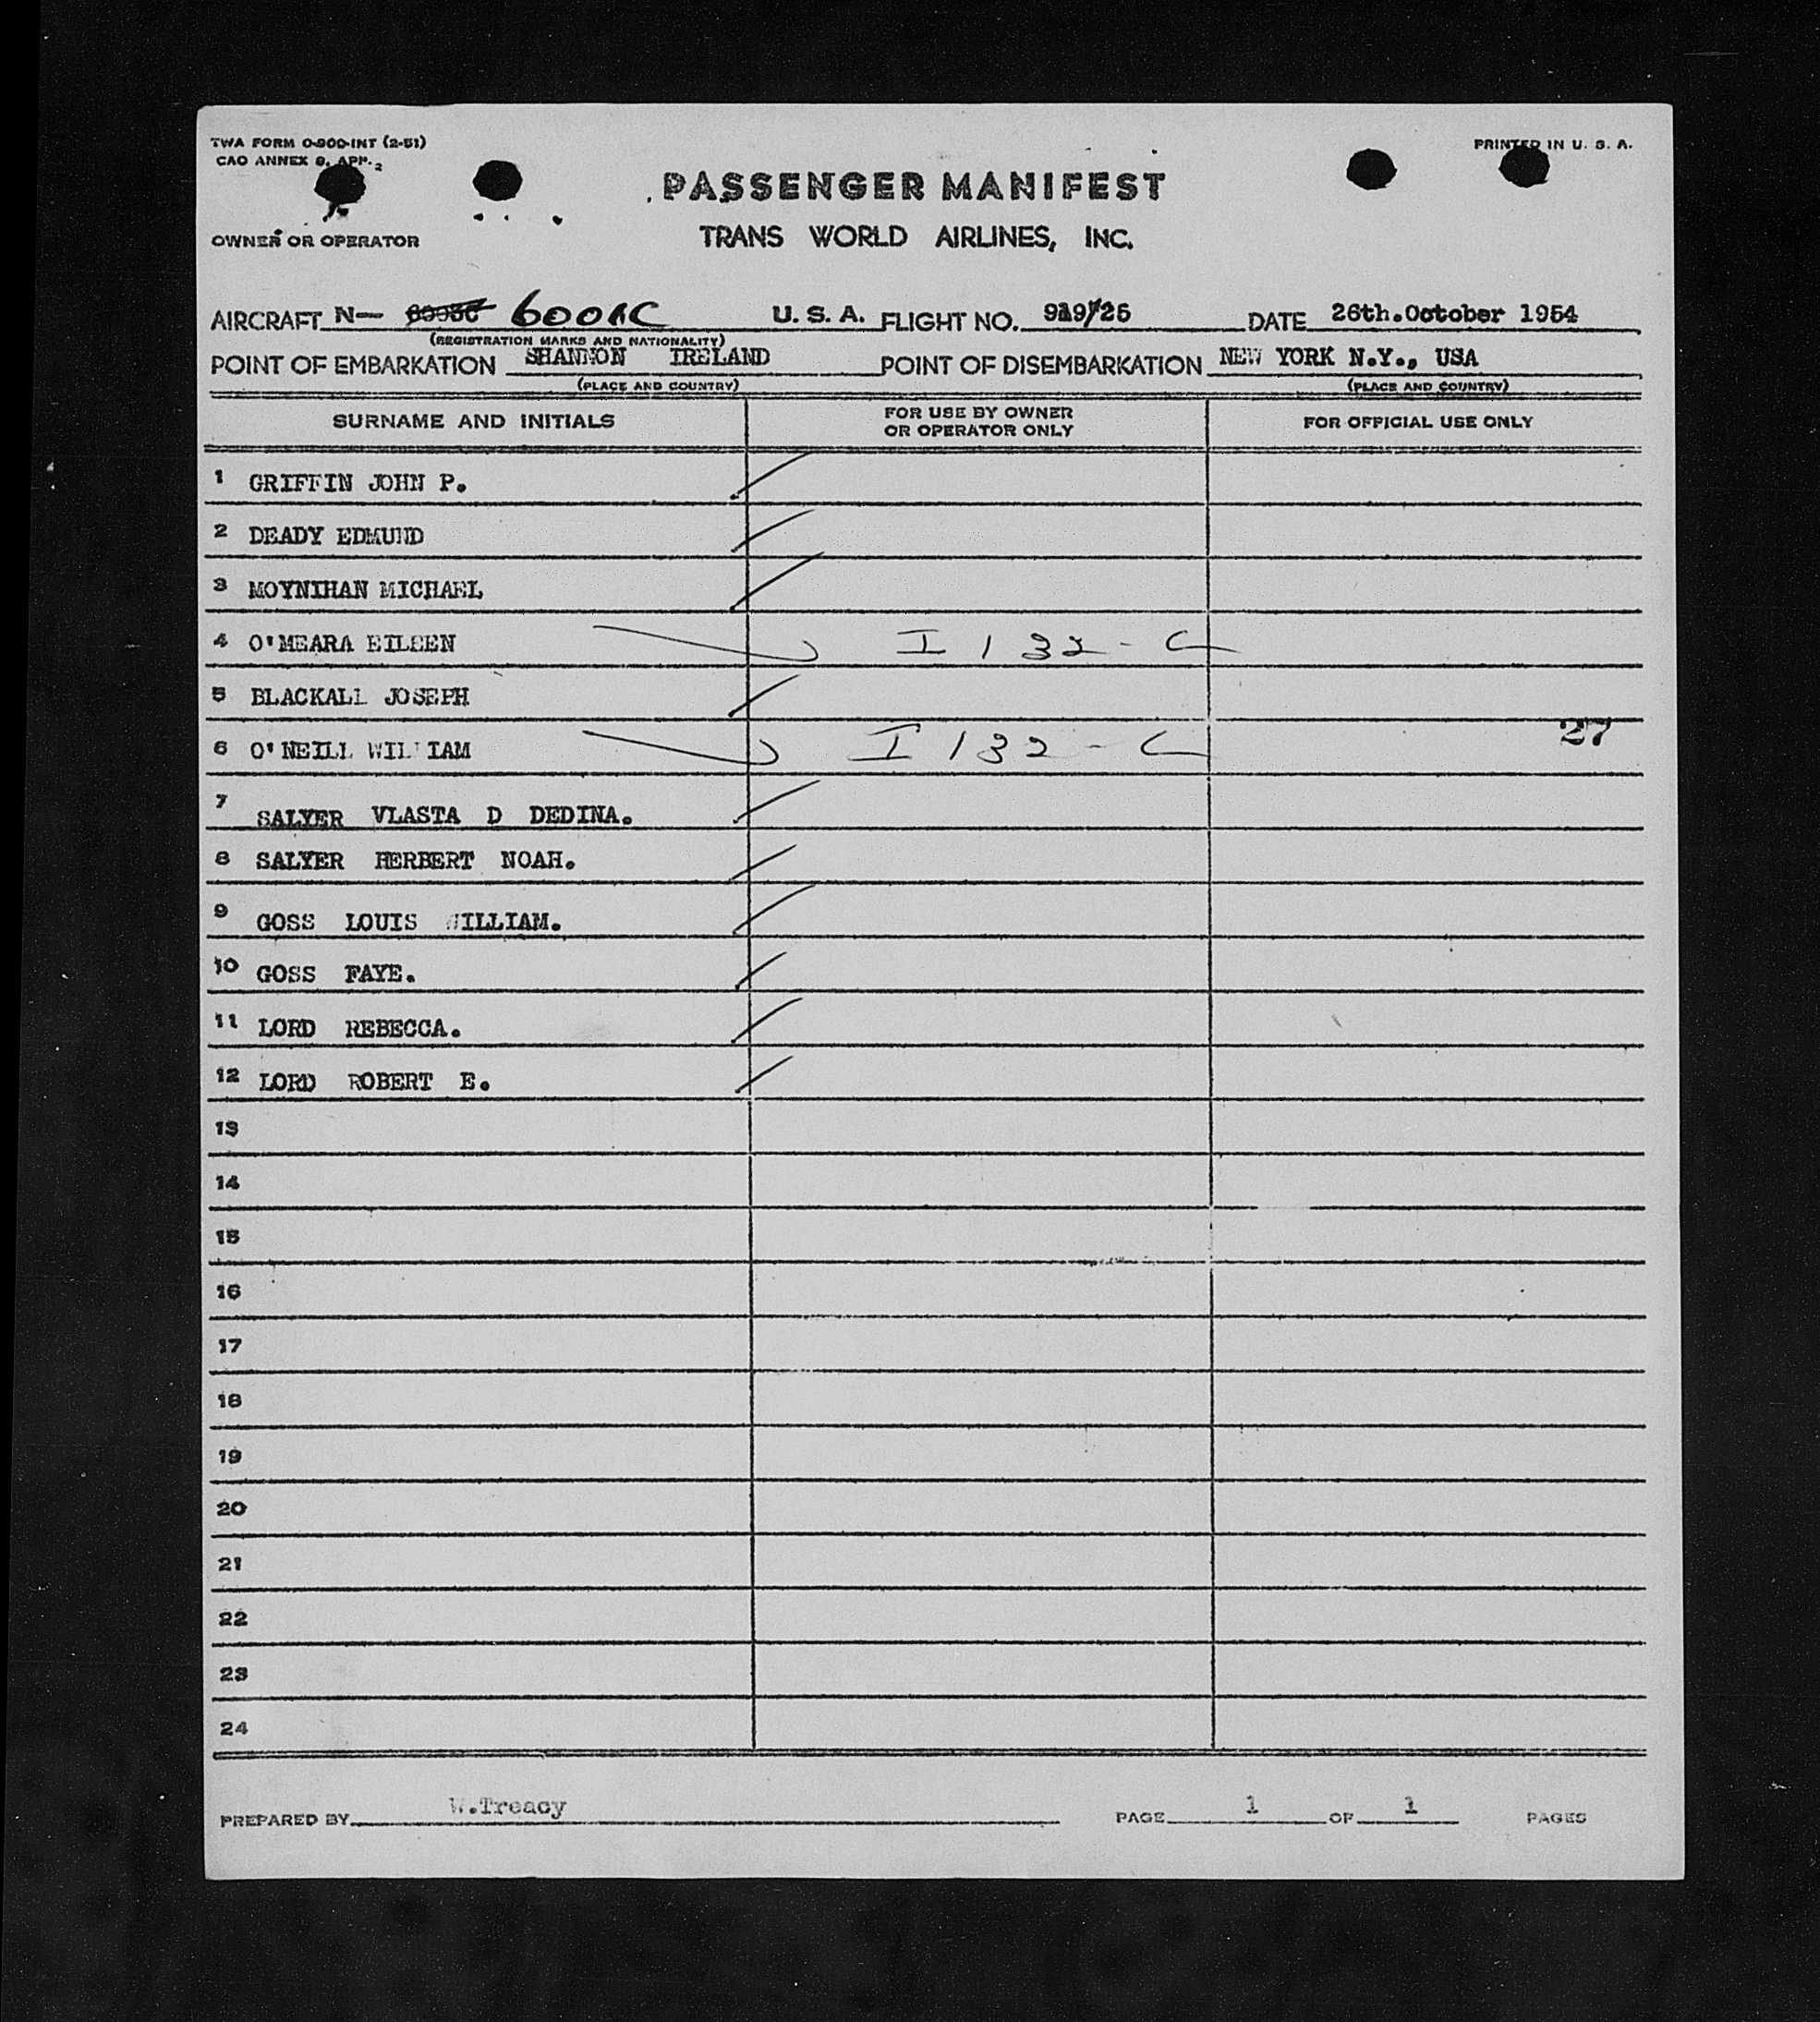 TWA FORM O-900-INT (2-51)
CAO ANNEX 9, APP. 2
PRINTED IN U. S. A.
PASSENGER MANIFEST
OWNER OR OPERATOR
TRANS WORLD AIRLINES, INC.
AIRCRAFT N— 6001C U. S. A. FLIGHT NO. 929/25 DATE 26th.October 1954
(REGISTRATION MARKS AND NATIONALITY)
POINT OF EMBARKATION SHANNON IRELAND POINT OF DISEMBARKATION NEW YORK N.Y., USA
(PLACE AND COUNTRY) (PLACE AND COUNTRY)
SURNAME AND INITIALS FOR USE BY OWNER OR OPERATOR ONLY FOR OFFICIAL USE ONLY
1 GRIFFIN JOHN P.
2 DEADY EDMUND
3 MOYNIHAN MICHAEL
4 O'MEARA EILEEN I 132 - C
5 BLACKALL JOSEPH
6 O'NEILL WILLIAM I 132 - C 27
7 SALYER VLASTA D DEDINA.
8 SALYER HERBERT NOAH.
9 GOSS LOUIS WILLIAM.
10 GOSS FAYE.
11 LORD REBECCA.
12 LORD ROBERT E.
13
14
15
16
17
18
19
20
21
22
23
24
PREPARED BY W.Treacy PAGE 1 OF 1 PAGES